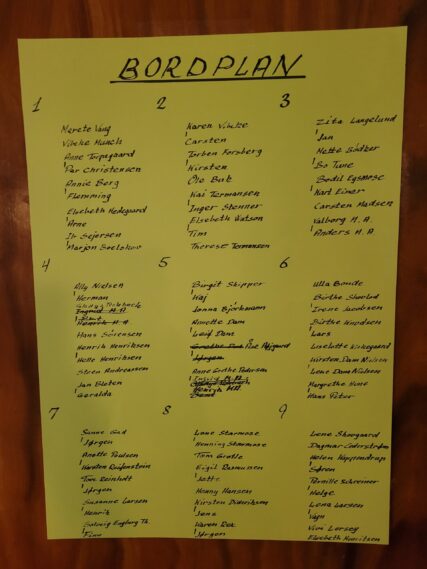 BORDPLAN
1
Merete Vang
Vibeke Munch
Anne Turpegaard
Pär Christensen
Annie Berg
Flemming
Elsebeth Hedegaard
Arne
Ib Sejersen
Marjon Boelskov
2
Karen Vibeke
Carsten
Torben Forsberg
Kirsten
Ole Bak
Kai Termansen
Inger Stenner
Elsebeth Watson
Tim
Therese Termansen
3
Zita Langelund
Jan
Mette Bødker
Bo Tune
Bodil Egsmose
Kurt Einer
Carsten Madsen
Valborg M. A.
Anders M. A.
4
Ally Nielsen
Herman
Ingrid M A
Henrik M. A.
Hans Sørensen
Henrik Henriksen
Helle Henriksen
Steen Andreassen
Jan Bloten
Geralda
5
Birgit Skipper
Kaj
Jonna Bjørkmann
Annette Dam
Leif Dam
Jørgen
Anne Grethe Pedersen
Ingrid M A
Henrik MA
6
Ulla Bonde
Birthe Skovlod
Irene Jacobsen
Birthe Knudsen
Lars
Liselotte Kirkegaard
Kirsten Dam Nielsen
Lene Dam Nielsen
Margrethe Hune
Hans Peter
7
Sanne Gad
Jørgen
Anette Poulsen
Karsten Reifenstein
Tove Reinholdt
Jørgen
Susanne Larsen
Henrik
Solveig Engborg Th.
Finn
8
Lone Starmose
Henning Starmose
Tom Grotle
Eigil Rasmussen
Jette
Henny Hansen
Kirsten Didriksen
Jens
Karen Bek
Jørgen
9
Lene Skovgaard
Dagmar Cederstrøm
Helen Happendrup
Søren
Pernille Schreiner
Helge
Lena Larsen
Vagn
Vivi Lorsey
Elsebeth Mouritzen